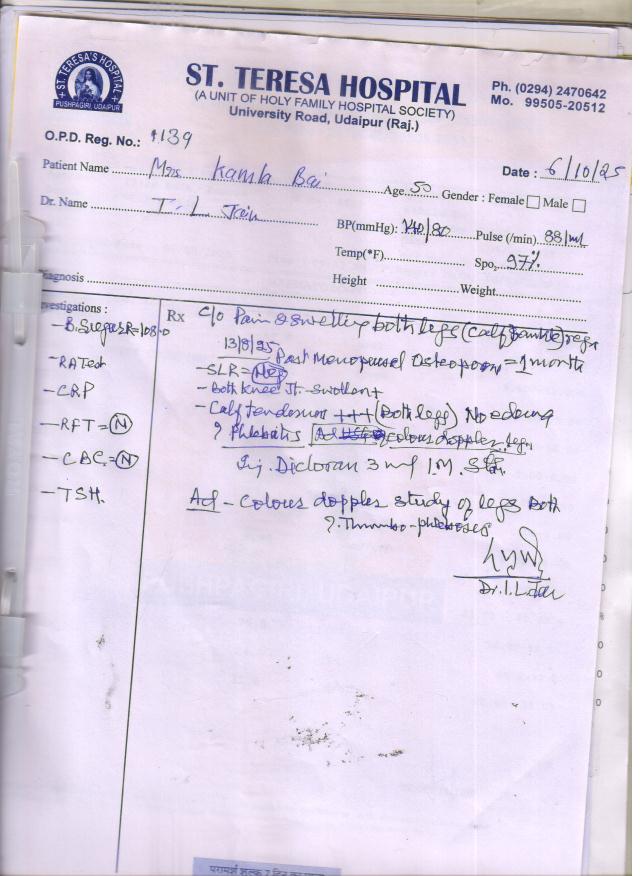 ST. TERESA'S HOSPITAL
PUSHPAGIRI, UDAIPUR
ST. TERESA HOSPITAL
(A UNIT OF HOLY FAMILY HOSPITAL SOCIETY)
University Road, Udaipur (Raj.)
Ph. (0294) 2470642
Mo. 99505-20512
O.P.D. Reg. No.: 1139
Date : 6/10/25
Patient Name Mrs Kamla Bai Age. 50 Gender : Female Male
Dr. Name I. L Jain
BP(mmHg): 140/80 Pulse (/min) 88/mt
Temp(°F) Spo2 97%
Diagnosis Height Weight
Investigations :
- B. Sugar R=108.0
- RA Test
- CRP
- RFT = N
- CBC = N
- TSH.
Rx C/o Pain & swelling both legs (Calf
13/8/25 Post Menopausal = 1 month
- SLR =
- Both Knee Jt. Swollen +
- Calf tenderness +++ (Both leg) No edema
? Phlebitis colour doppler legs
Inj. Dicloran 3 ml I.M. Stat
Ad - Colour doppler study of legs Both
? Thrombo-phlebitis
Dr. I. L. Jain